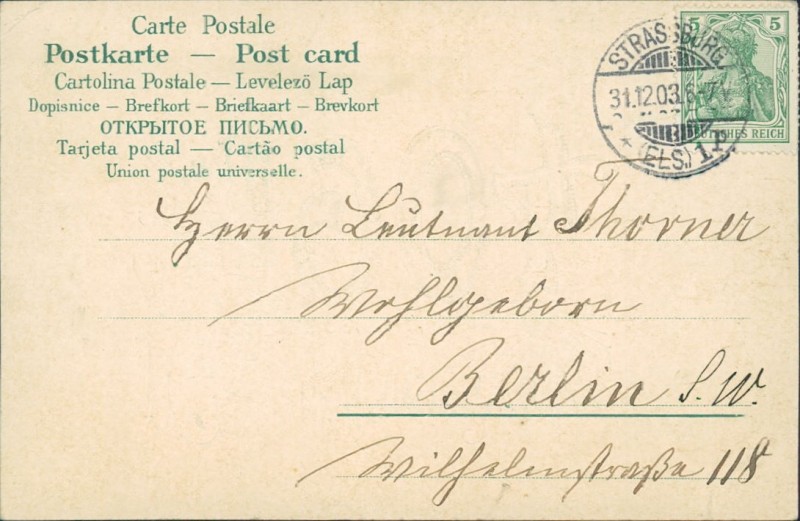 Carte Postale
Postkarte — Post card
Cartolina Postale — Levelező Lap
Dopisnice — Brefkort — Briefkaart — Brevkort
ОТКРЫТОЕ ПИСЬМО.
Tarjeta postal — Cartão postal
Union postale universelle.
5 5
STRASSBURG
31.12.03. 6-7 V
* (ELS.) 1 P.
DEUTSCHES REICH
Herrn Leutnant Thorner
Wohlgeborn
Berlin S.W.
Wilhelmstraße 118